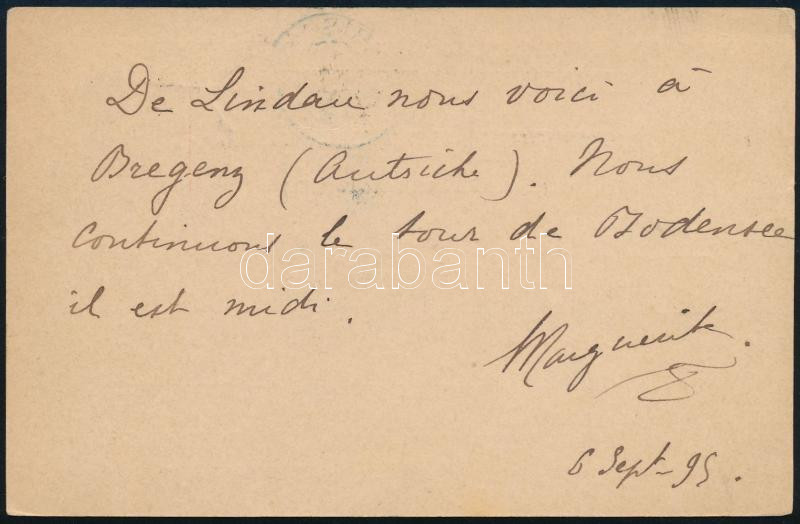 De Lindau nous voici à
Bregenz (Autriche). Nous
continuons le tour de Bodensee
il est midi.
Marguerite.
6 Sept-95.
darabanth